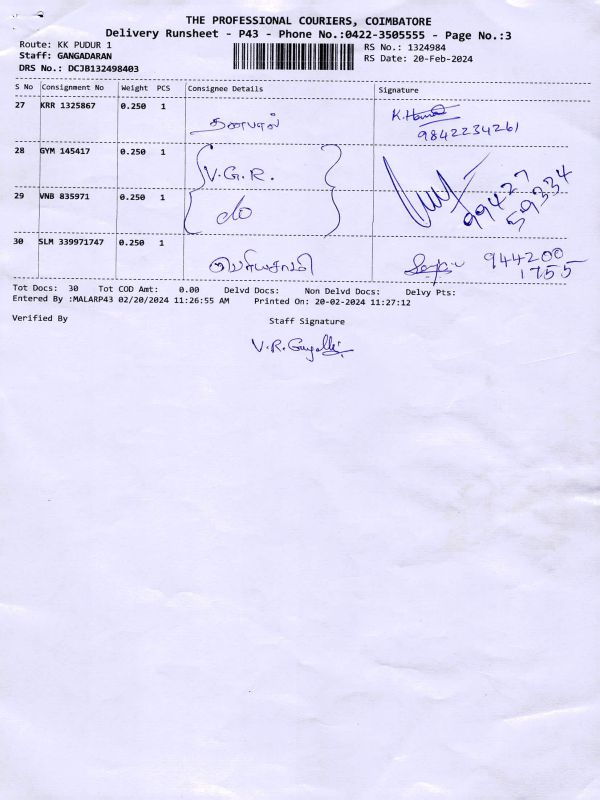 THE PROFESSIONAL COURIERS, COIMBATORE
Delivery Runsheet - P43 - Phone No.:0422-3505555 - Page No.:3
Route: KK PUDUR 1
RS No.: 1324984
Staff: GANGADARAN
RS Date: 20-Feb-2024
DRS No.: DCJB132498403
S No Consignment No Weight PCS Consignee Details Signature
27 KRR 1325867 0.250 1
9842234261
28 GYM 145417 0.250 1 V.G.R.
99427
59334
29 VNB 835971 0.250 1 do
30 SLM 339971747 0.250 1 பெரியசாமி 944200
1755
Tot Docs: 30 Tot COD Amt: 0.00 Delvd Docs: Non Delvd Docs: Delvy Pts:
Entered By :MALARP43 02/20/2024 11:26:55 AM Printed On: 20-02-2024 11:27:12
Verified By Staff Signature